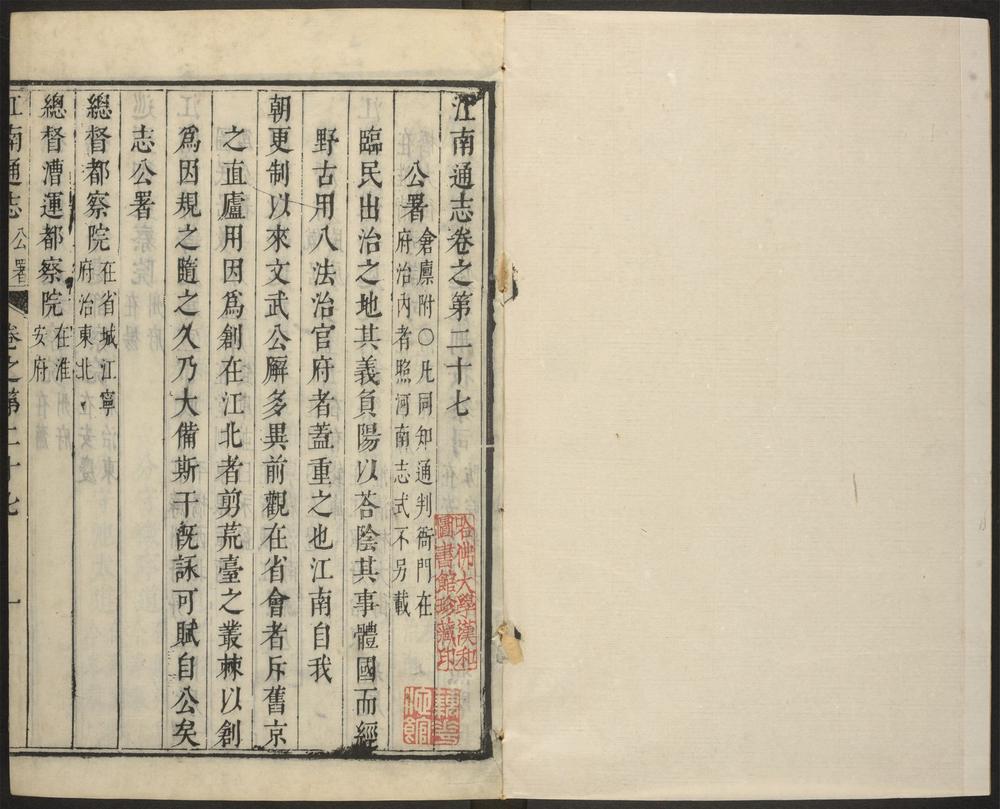 江南通志卷之第二十七
公署
倉廩附〇凡同知通判衙門在
府治內者照河南志式不另載
臨民出治之地其義負陽以荅陰其事體國而經
野古用八法治官府者蓋重之也江南自我
朝更制以來文武公廨多異前觀在省會者斥舊京
之直廬用因爲創在江北者剪荒臺之叢棘以創
爲因規之隨之久乃大備斯干旣詠可賦自公矣
志公署
總督都察院
在省城江寧
府治東北
總督漕運都察院
在淮
安府
江南通志
公署
卷之第二十七
一
哈佛大學漢和
圖書館珍藏印